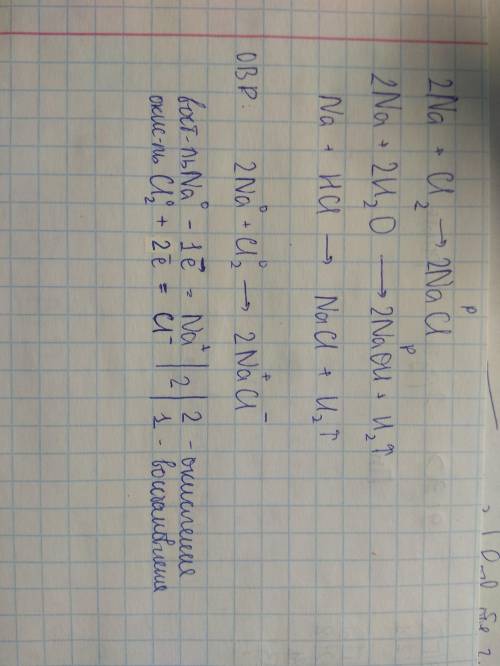 2Na + Cl₂ → 2NaCl
р
2Na + 2H₂O → 2NaOH + H₂↑
р
Na + HCl → NaCl + H₂↑
ОВР: 2Na⁰ + Cl₂⁰ → 2Na⁺Cl⁻
вост-ль Na⁰ - 1ē = Na⁺ | 2 | 2 - окисления
окис-ль Cl₂⁰ + 2ē = Cl⁻ | | 1 - восстановления